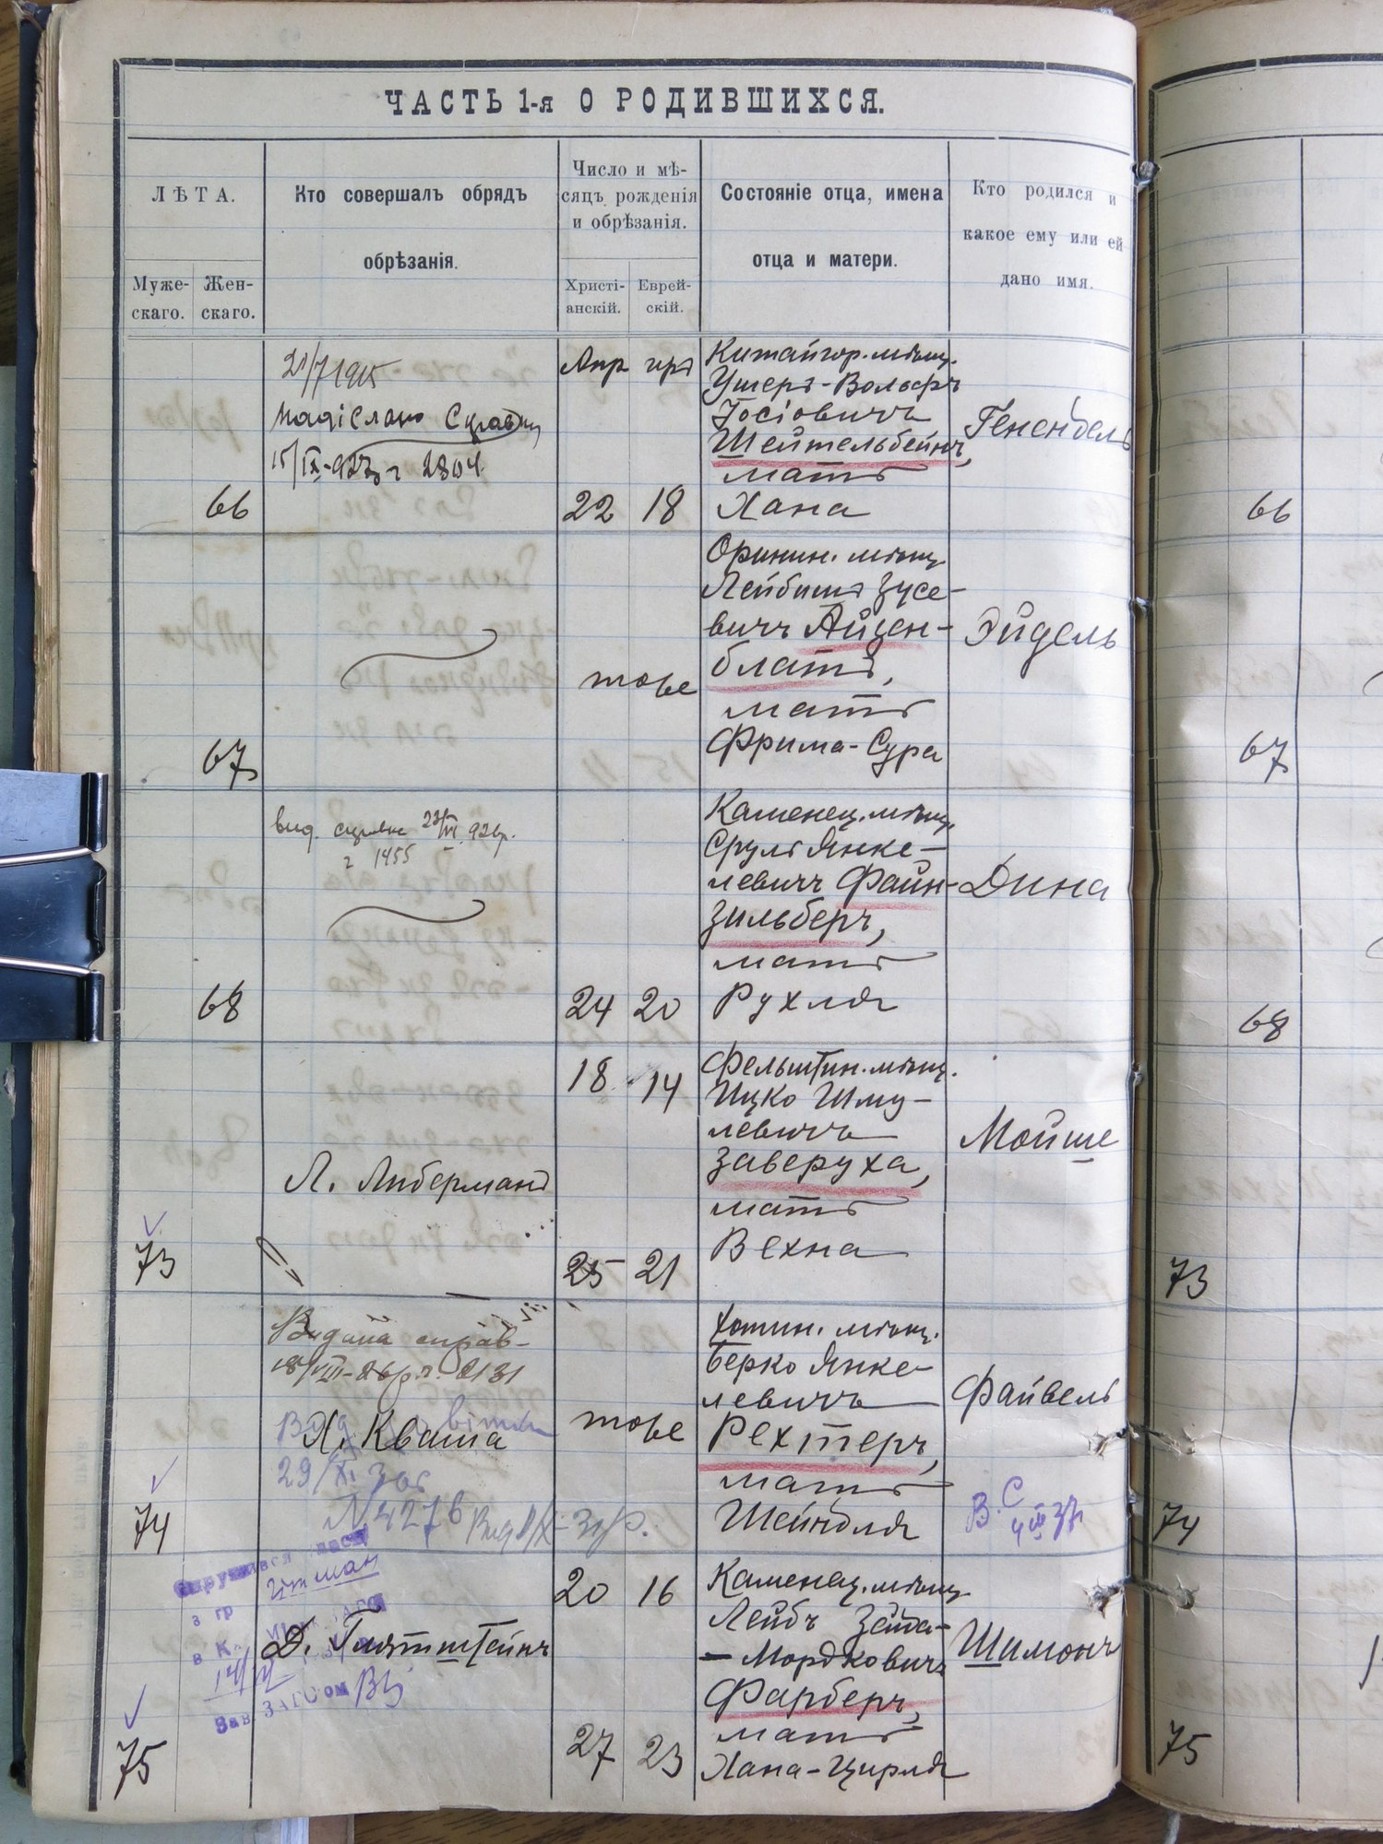 ЧАСТЬ 1-я О РОДИВШИХСЯ.
ЛѢТА.
Муже-
скаго.
Жен-
скаго.
Кто совершалъ обрядъ
обрѣзанія.
Число и мѣ-
сяцъ рожденія
и обрѣзанія.
Христі-
анскій.
Еврей-
скій.
Состояніе отца, имена
отца и матери.
Кто родился и
какое ему или ей
дано имя.
66
21/7 1915
15/IX-927 г 2804
Апр
22 18
Китайгор. мѣщ.
Ушеръ-Вольфъ
Іосіовичъ
Шейтельбейнъ,
мать
Хана
Генендель
66
67
тоже
Оринин. мѣщ.
Лейбишъ Зусе-
вичъ Айзен-
блатъ,
мать
Фрима-Сура
Эйдель
67
68
1455
24 20
Каменец. мѣщ.
Сруль Янке-
левичъ Файн-
зильберъ,
мать
Рухля
Дина
68
73
Л. Либерманъ
18 14
25 21
Фельштин. мѣщ.
Ицко Шму-
левичъ
Заверуха,
мать
Вехна
Мойше
73
74
Видана справ-
2131
Х. Кваша
29/XI
N 4276
тоже
Хотин. мѣщ.
Берко Янке-
левичъ
Рехтеръ,
мать
Шейндля
Файвель
В. С
74
75
Д. Гиятштейнъ
Зав. ЗАГСом
20 16
27 23
Каменец. мѣщ.
Лейбъ Зейда-
-Мордковичъ
Фарберъ,
мать
Хана-Цирля
Шимонъ
75